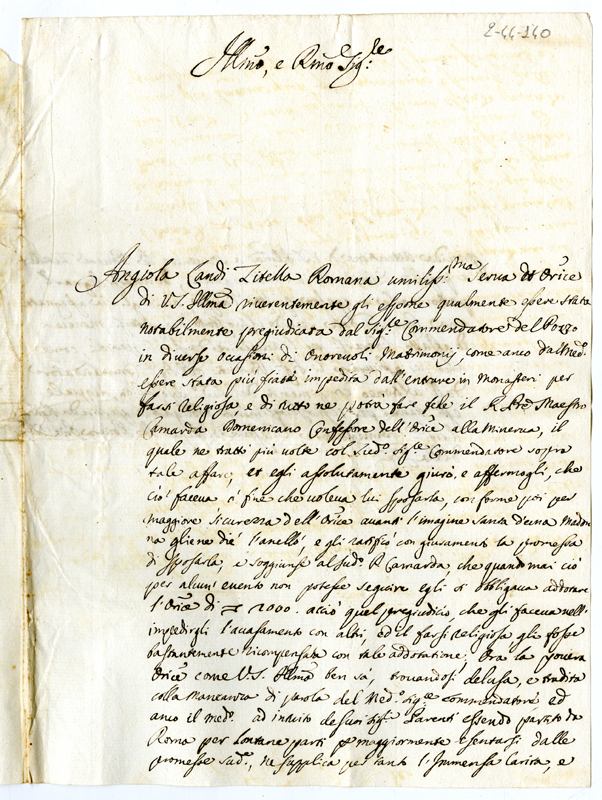 2-44-140
Ill.mo, e R.mo Sig.re
Angiola Candi Zitella Romana umiliss.ma Serva et Or.ice
di V.S. Ill.ma riverentemente gli espone qualmente essere stata
notabilmente pregiudicata dal Sig.re Commendatore del Pozzo
in diverse occasioni di onorevoli Matrimonij, come anco dall med.o
essere stata più fiate impedita dall'entrare in Monasteri per
farsi religiosa e di tutto ne potrà fare fede il R. P.re Maestro
Camarda Domenicano Confessore dell'Or.ice alla Minerva, il
quale ne trattò più volte col sud.o Sig.re Commendatore sopra
tale affare, et egli assolutamente giurò, e affermogli, che
ciò faceva a fine che voleva lui sposarla, conforme poi per
maggiore sicurezza dell'Or.ice avanti l'imagine Santa d'una Madon
na gliene diè l'anello, e gli ratificò con giuramento la promessa
di sposarla, e soggiunse al sud.o P. Camarda, che quando mai ciò
per alcun evento non potesse seguire egli si obbligava addotare
l'Or.ice di 2000. acciò quel pregiudicio che gli faceva nell'
impedirgli l'accasamento con altri, ed il farsi religiosa gli fosse
bastantemente ricompensato con tale addotatione; Ora la povera
Or.ice come V.S. Ill.ma ben sa, trovandosi delusa, e tradita
colla mancanza di parola del Med.o Sig.re Commendatore ed
anco il med.o ad intuito de suoi Sig.ri Parenti essendo partito da
Roma per lontane parti p maggiormente esentarsi dalle
promesse sud.e, ne supplica per tanto l'Immensa Carità, e